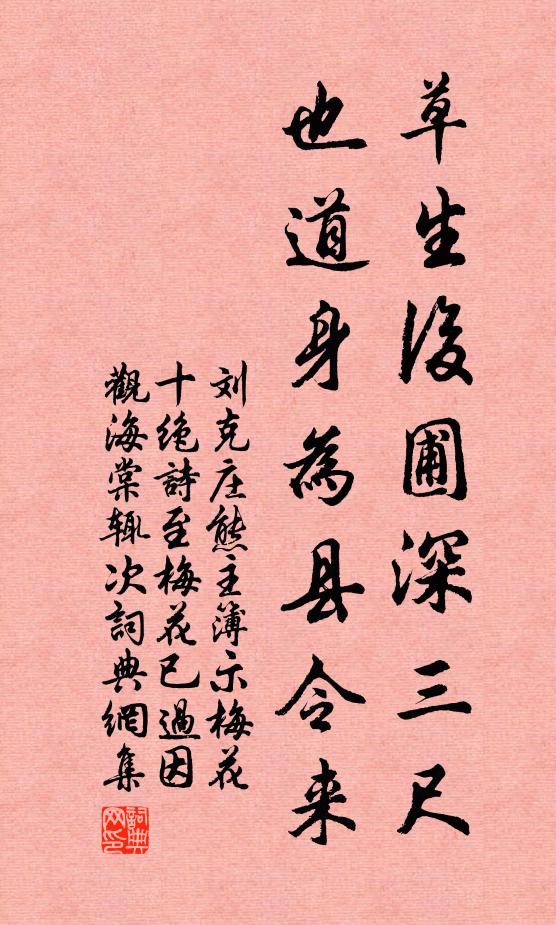 草生後圃深三尺
也道身為县令来
刘克庄熊主簿示梅花
十绝詩至梅花已過因
觀海棠辄次詞典網集
詞典
网印